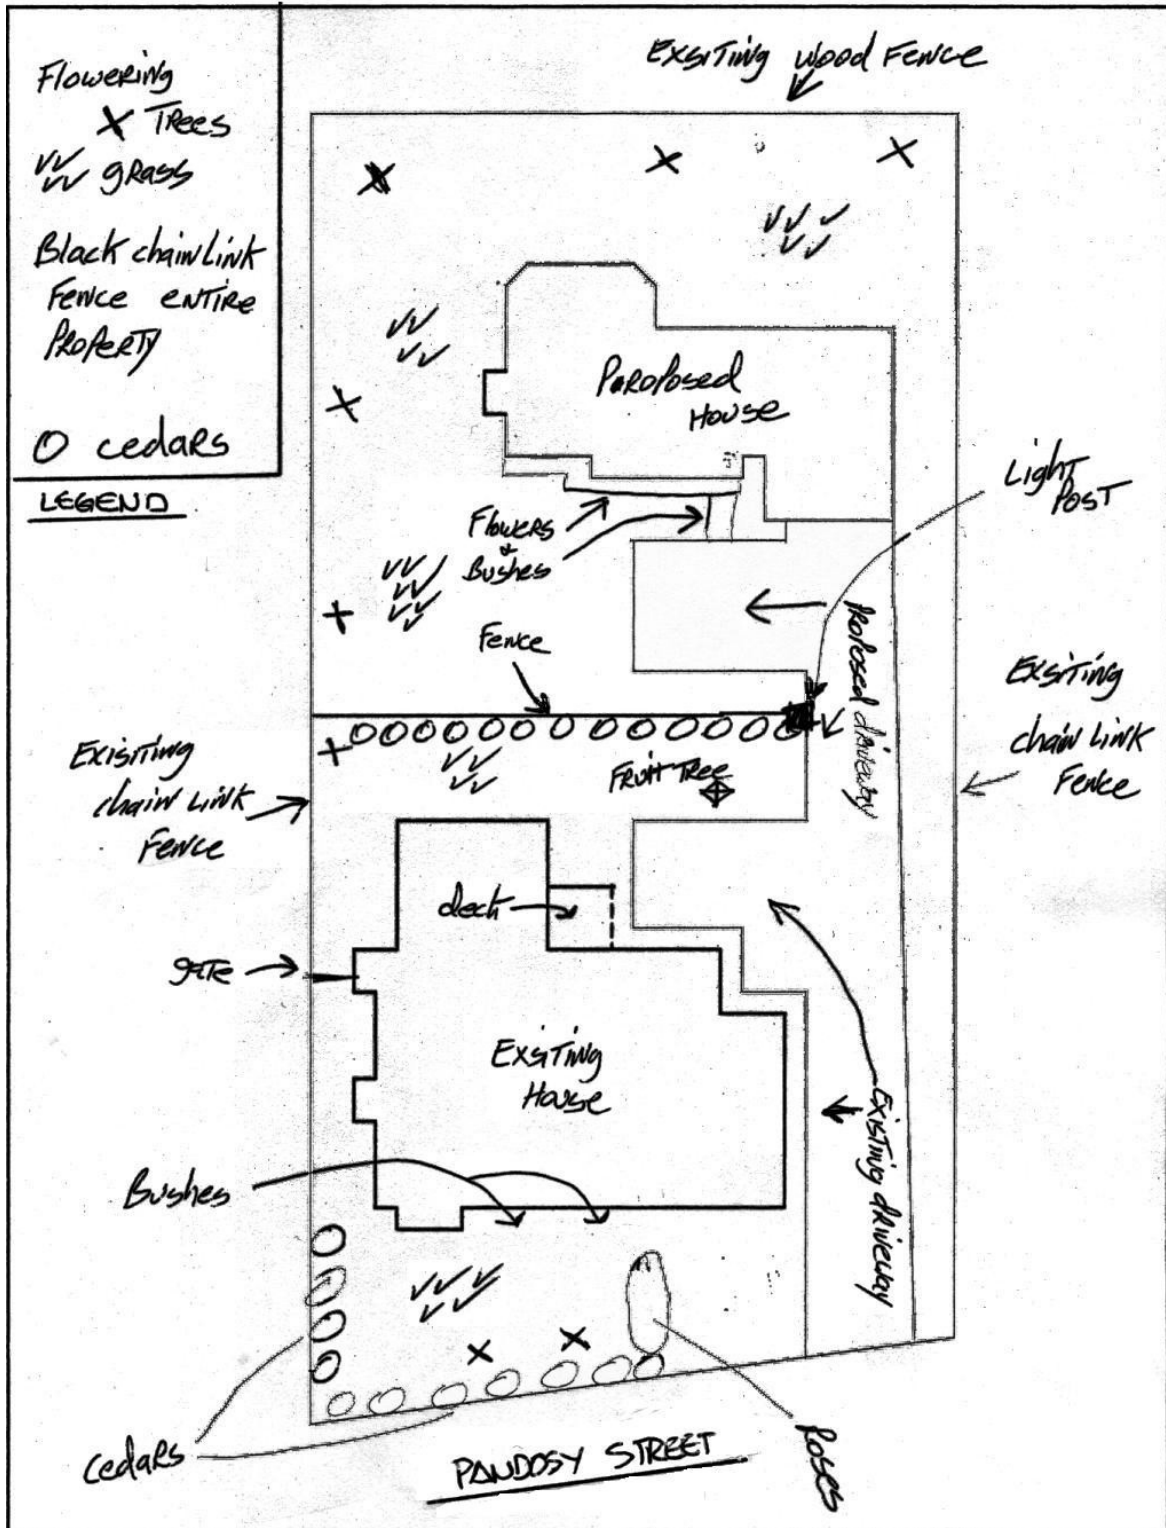 Flowering
X Trees
grass
Black chain Link
Fence entire
Property
O cedars
LEGEND
Exsiting wood Fence
Proposed
House
Light
Post
Flowers
&
Bushes
Proposed driveway
Fence
Exsiting
chain Link
Fence
Exisiting
chain Link
Fence
Fruit Tree
deck
gate
Exsiting
House
Existing driveway
Bushes
Cedars
PANDOSY STREET
Roses